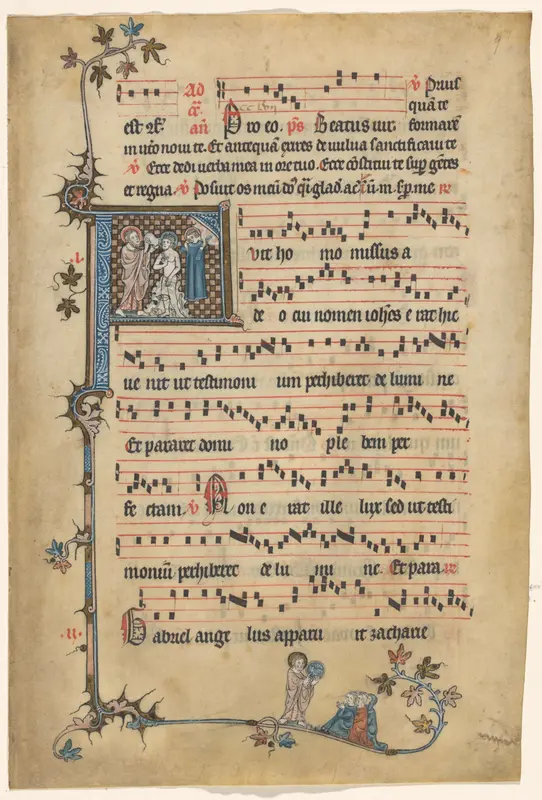 Ad
℣ Prius
cc lvii
quā te
est ℟.
añ Pro eo. ps Beatus vir. formarē
in utō novi te. Et antequā exires de vulva sanctificavi te
℣ Ecce dedi verba mea in ore tuo. Ecce cōstitui te sup gētes
et regna ℣ Posuit os meū
I.
Fvit ho mo missus a
de o cui nomen iohēs e rat hic
ve nit ut testimoni um perhiberet de lumi ne
Et pararet domi no ple bem per
fe ctam. ℣ Non e rat ille lux sed ut testi
moniū perhiberet de lu mi ne. Et para. ℟
II.
Gabriel ange lus apparu it zacharie